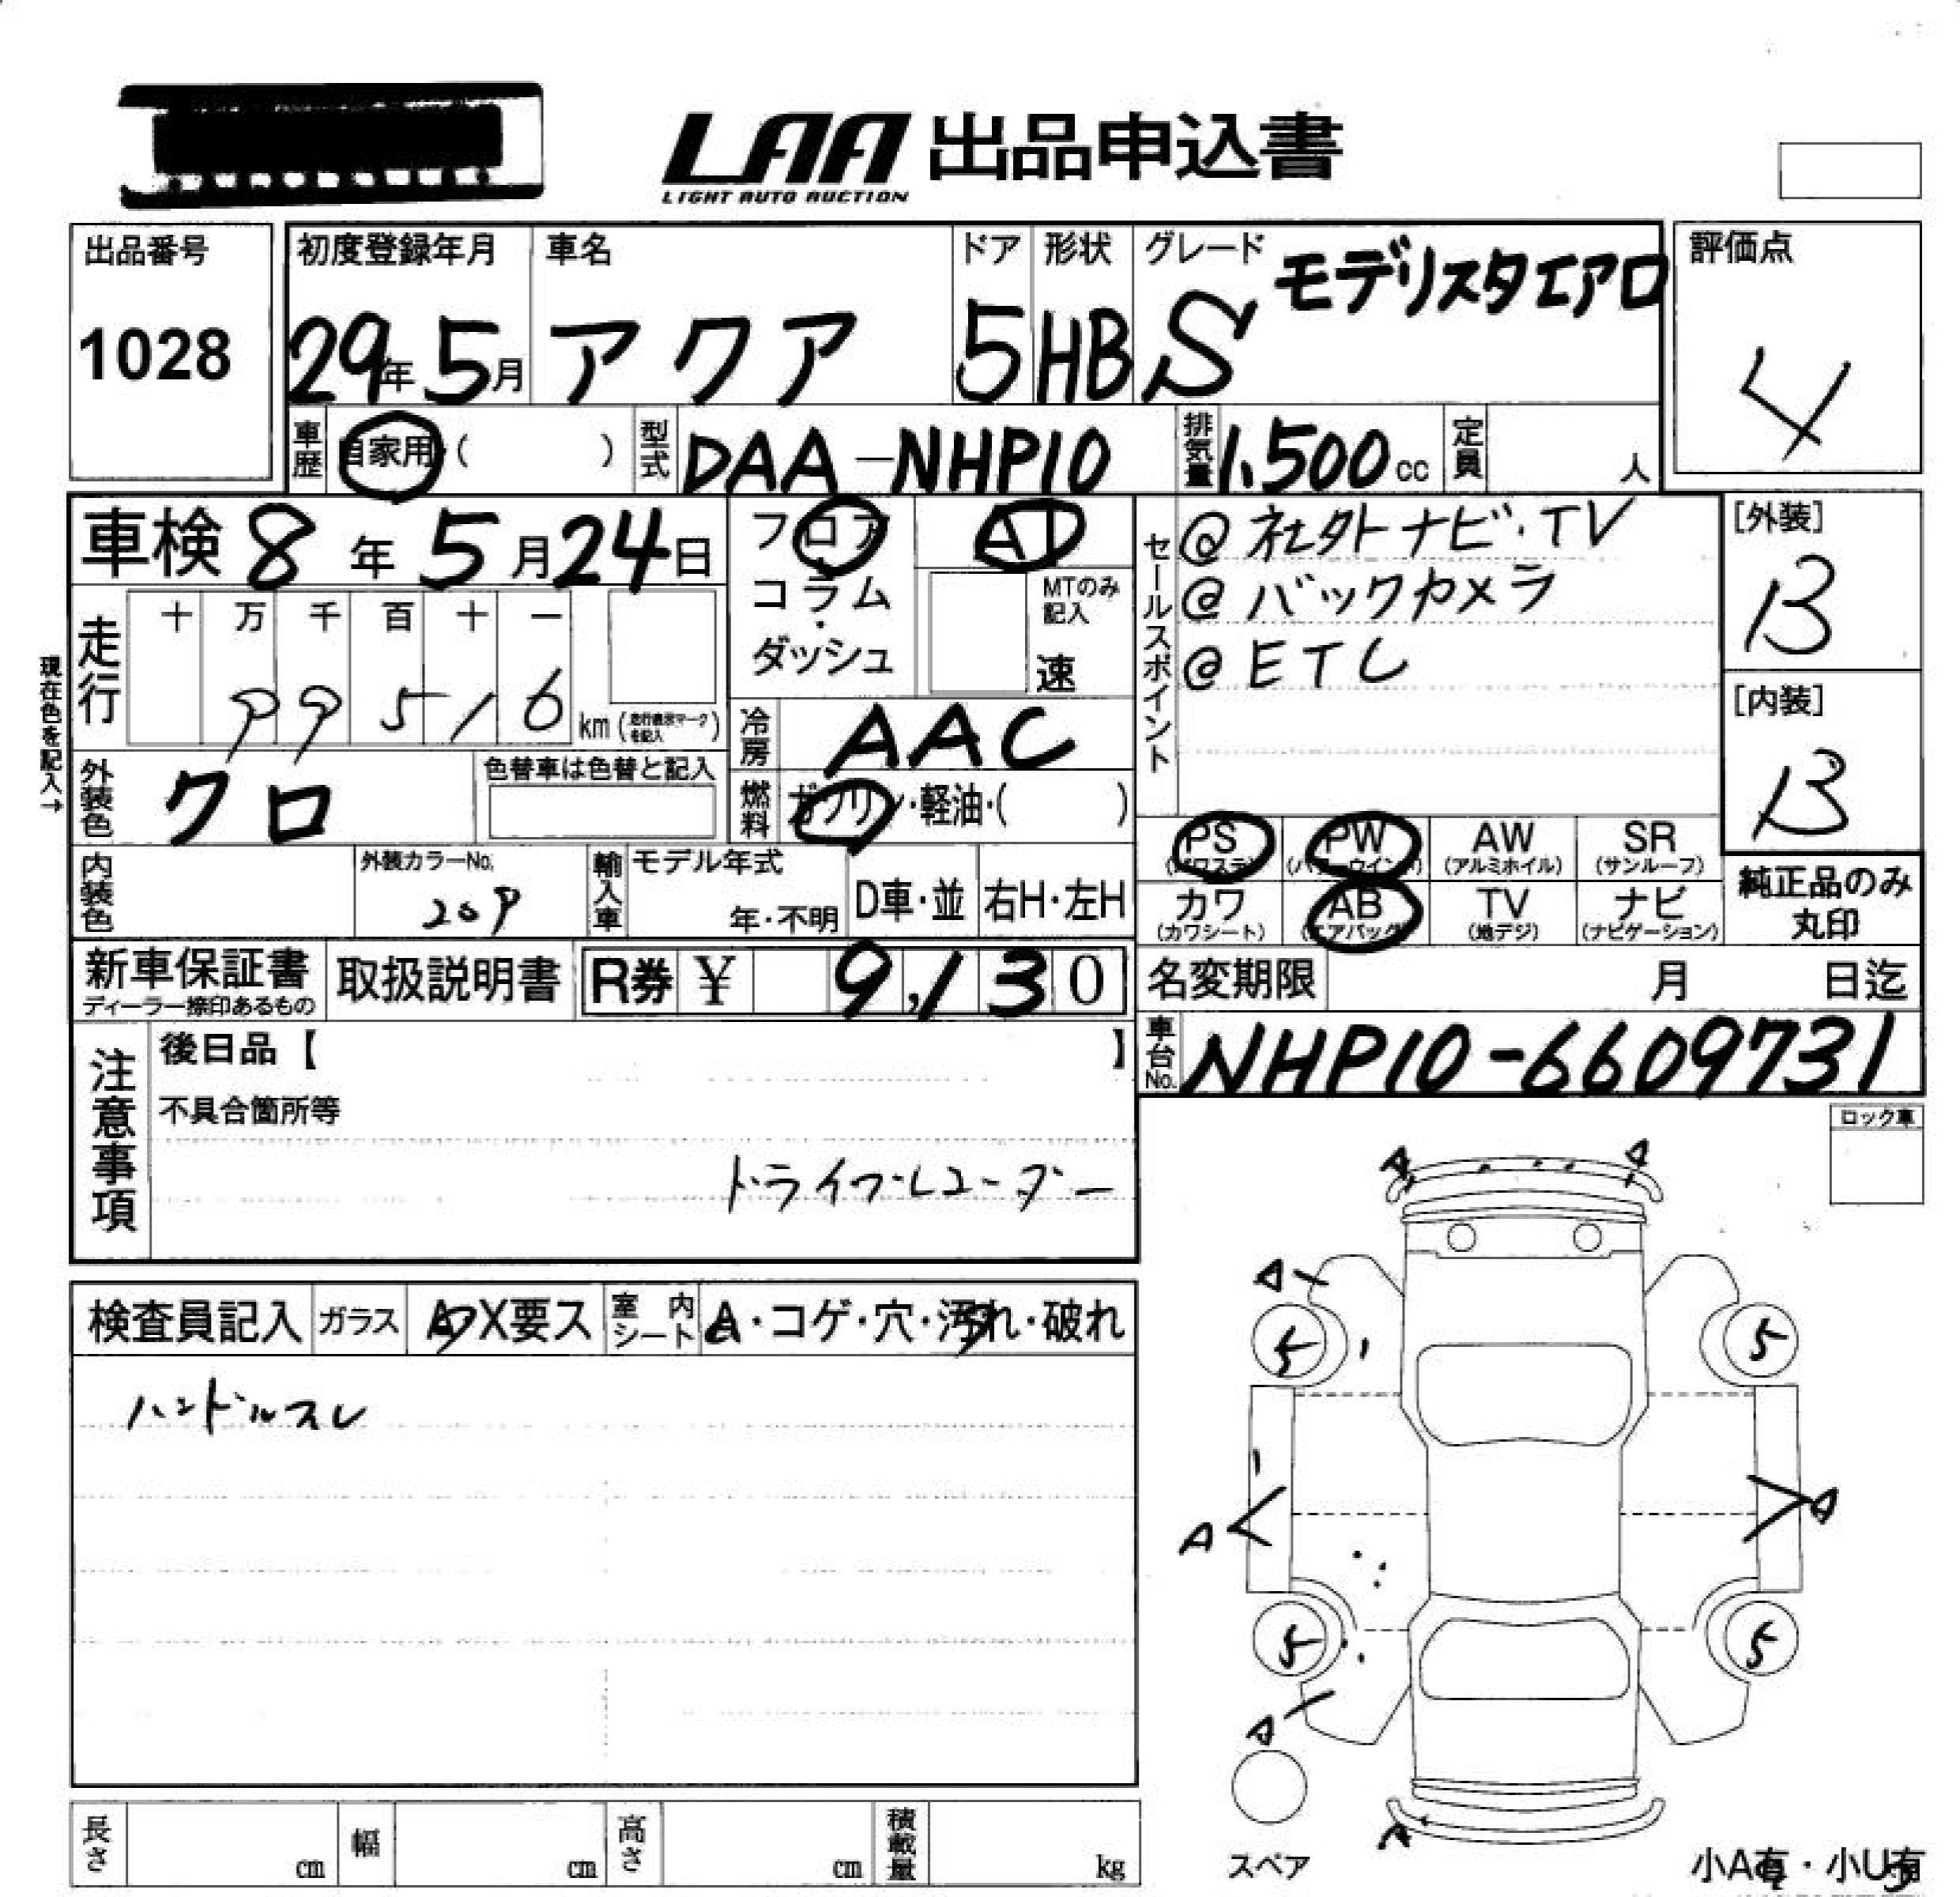 LAA 出品申込書
LIGHT AUTO AUCTION
出品番号
1028
初度登録年月
29年 5月
車名
アクア
ドア
5
形状
HB
グレード
S モデリスタエアロ
評価点
4
車歴 自家用・( )
型式 DAA-NHP10
排気量 1,500cc
定員 人
車検 8年 5月 24日
フロア・コラム・ダッシュ
AT
MTのみ記入
速
現在色を記入→
走行
十 万 千 百 十 一
9 9 5 1 6 km (走行表示マークを記入)
冷房 AAC
燃料 ガソリン・軽油・( )
セールスポイント
@社外ナビ・TV
@バックカメラ
@ETC
[外装]
B
[内装]
B
外装色 クロ
色替車は色替と記入
内装色
外装カラーNo.
209
輸入車
モデル年式
年・不明
D車・並
右H・左H
PS (パワステ)
PW (パワーウインド)
AW (アルミホイル)
SR (サンルーフ)
カワ (カワシート)
AB (エアバッグ)
TV (地デジ)
ナビ (ナビゲーション)
純正品のみ
丸印
新車保証書
ディーラー捺印あるもの
取扱説明書
R券 ¥ 9,130
名変期限 月 日迄
車台No. NHP10-6609731
注意事項
後日品【 】
不具合箇所等
ドライブレコーダー
ロック車
検査員記入
ガラス
A・X要ス
室内シート
A・コゲ・穴・汚れ・破れ
ハンドルスレ
A A
A
5 5
A A
5 5
A
A
スペア
小A有・小U有
長さ cm
幅 cm
高さ cm
積載量 kg